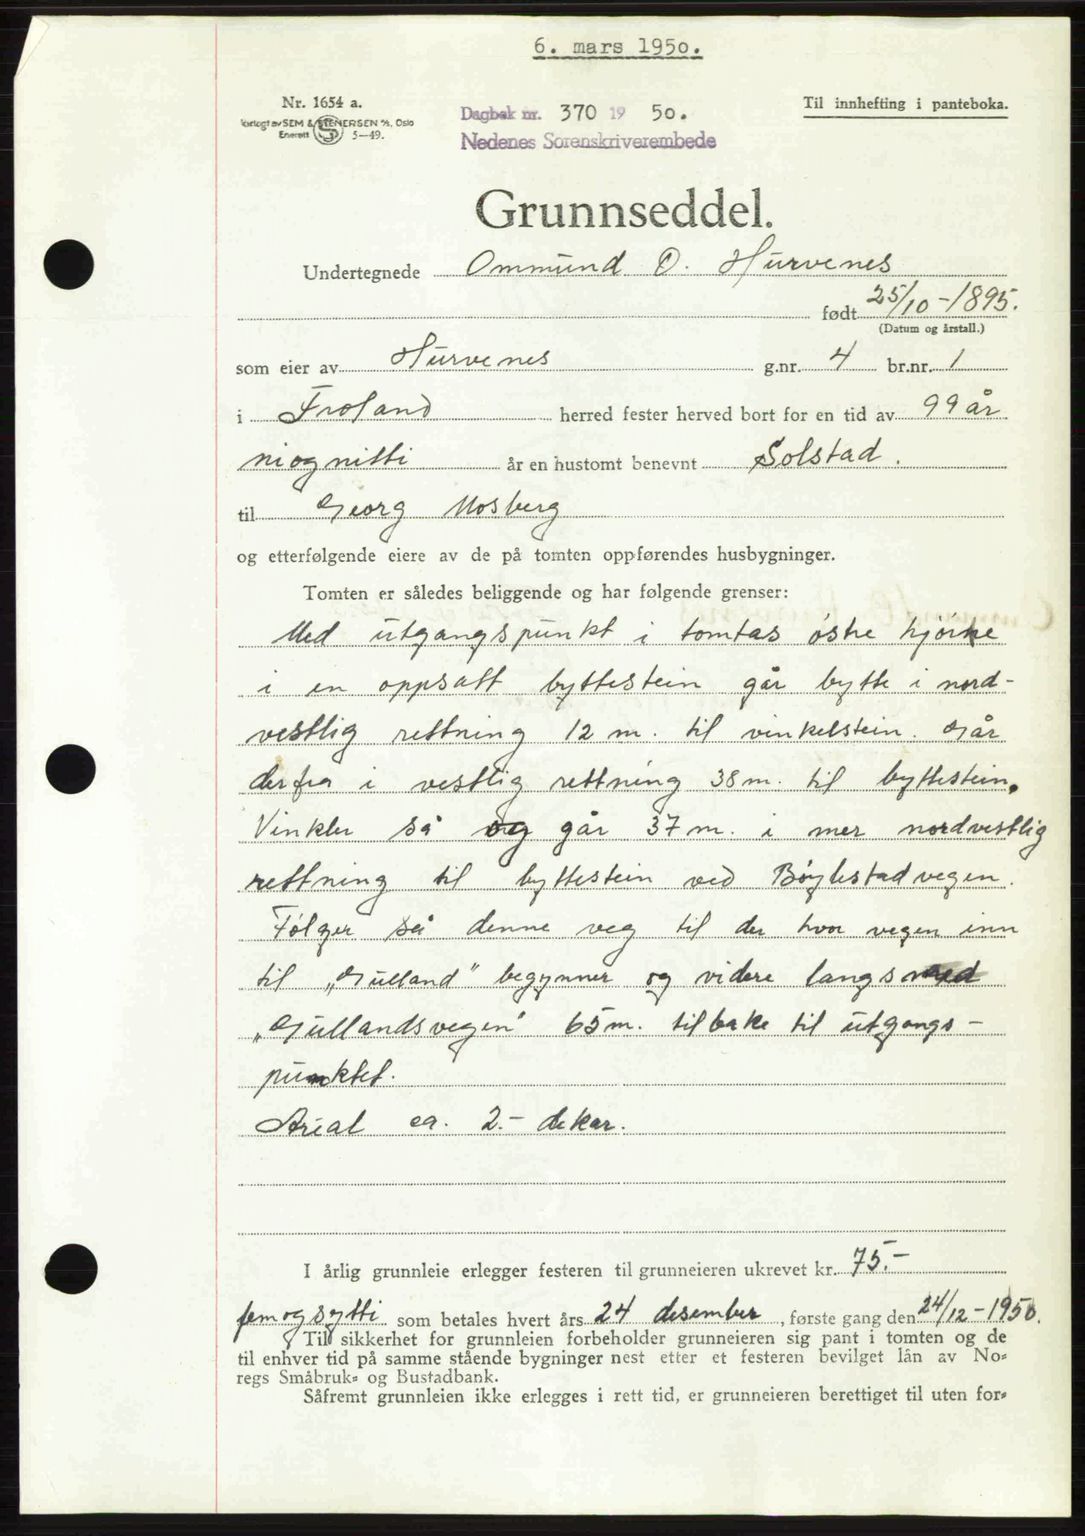 6. mars 1950.
Nr. 1654 a.
Forlagt av SEM & STENERSEN A/S, Oslo
Enerett 5—49.
Dagbok nr. 370 19 50.
Nedenes Sorenskriverembede
Til innhefting i panteboka.
Grunnseddel.
Undertegnede Ommund O. Hurvenes
født 25/10-1895.
(Datum og årstall.)
som eier av Hurvenes g.nr. 4 br.nr. 1
i Froland herred fester herved bort for en tid av 99 år
niognitti år en hustomt benevnt Solstad.
til Georg Mosberg
og etterfølgende eiere av de på tomten oppførendes husbygninger.
Tomten er således beliggende og har følgende grenser:
Med utgangspunkt i tomtas østre hjørne
i en oppsatt byttestein går bytte i nord-
vestlig rettning 12 m. til vinkelstein. Går
derfra i vestlig rettning 38 m. til byttestein.
Vinkler så og går 37 m. i mer nordvestlig
rettning til byttestein ved Bøylestadvegen.
Følger så denne veg til der hvor vegen inn
til „Gulland" begynner og videre langs med
„Gullandsvegen" 65 m. tilbake til utgangs-
punktet.
Areal ca. 2.- dekar.
I årlig grunnleie erlegger festeren til grunneieren ukrevet kr. 75.-
femogsytti som betales hvert års 24 desember, første gang den 24/12-1950.
Til sikkerhet for grunnleien forbeholder grunneieren sig pant i tomten og de
til enhver tid på samme stående bygninger nest etter et festeren bevilget lån av No-
regs Småbruk- og Bustadbank.
Såfremt grunnleien ikke erlegges i rett tid, er grunneieren berettiget til uten for-